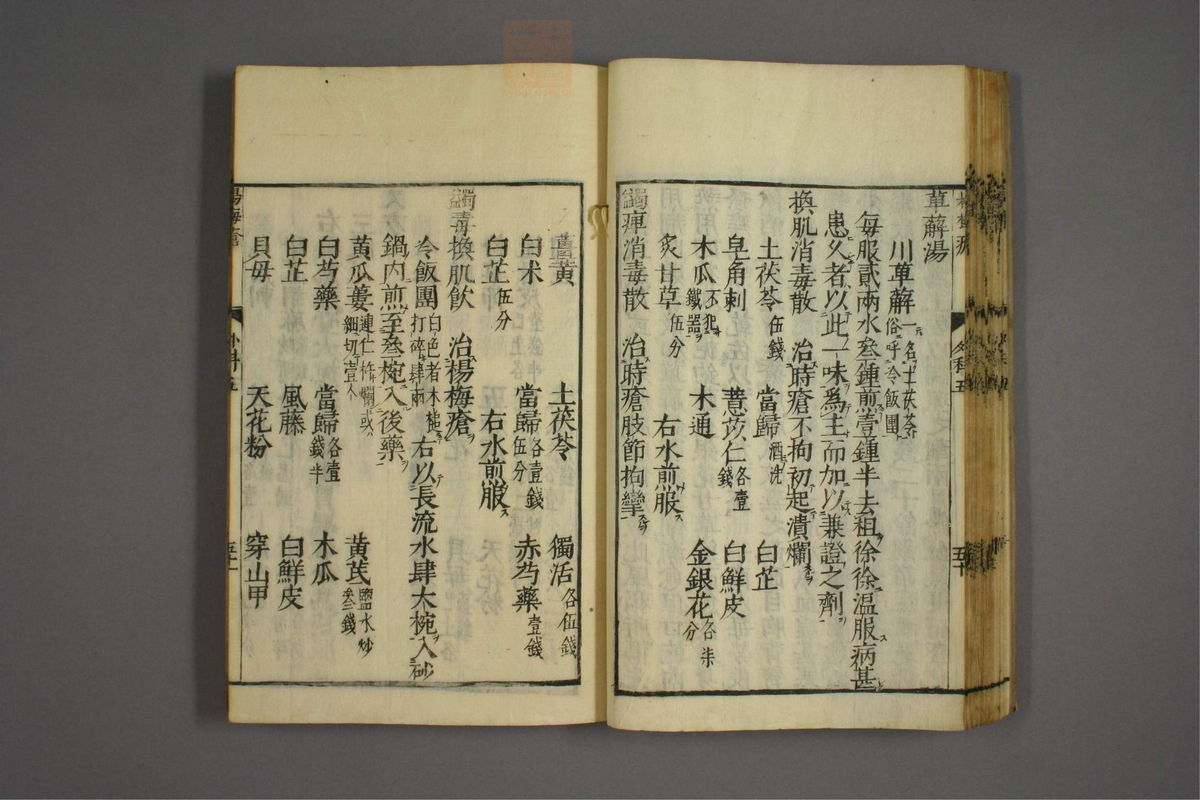 萆薢湯
川萆薢一名土茯苓俗呼冷飯團
每服貳兩水叄鍾煎壹鍾半去柤徐徐温服病甚
患久者以此一味爲主而加以兼證之劑
換肌消毒散 治時瘡不拘初起潰爛
土茯苓伍錢 當歸酒洗 白芷
皁角刺 薏苡仁各壹錢 白鮮皮
木瓜不犯鐵器 木通 金銀花各柒分
炙甘草伍分 右水煎服
蠲痺消毒散 治時瘡肢節拘攣
外科五
五十
薑黄 土茯苓 獨活各伍錢
白朮 當歸各壹錢伍分 赤芍藥壹錢
白芷伍分 右水煎服
蠲毒換肌飲 治楊梅瘡
冷飯團白色者木槌打碎肆兩 右以長流水肆大椀入砂
鍋内煎至叄椀入後藥
黄瓜蔞連仁杵爛或細切壹个 黄芪鹽水炒叄錢
白芍藥 當歸各壹錢半 木瓜
白芷 風藤 白鮮皮
貝母 天花粉 穿山甲
楊梅瘡
外科五